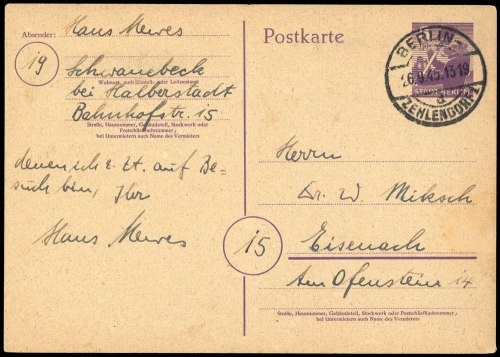 Absender: Hans Mewes
19
Schwanebeck
Wohnort, auch Zustell- oder Leitpostamt
bei Halberstadt
Bahnhofstr. 15
Straße, Hausnummer, Gebäudeteil, Stockwerk oder
Postschließfachnummer;
bei Untermietern auch Name des Vermieters
denen ich z. Zt. auf Be=
such bin, Ihr
Hans Mewes
Postkarte
BERLIN-
26.9.45.13-19
a
ZEHLENDORF 1
STADT BERLIN
Herrn
Dr. W. Miksch
15
Eisenach
Am Ofenstein 14
Straße, Hausnummer, Gebäudeteil, Stockwerk oder Postschließfachnummer;
bei Untermietern auch Name des Vermieters